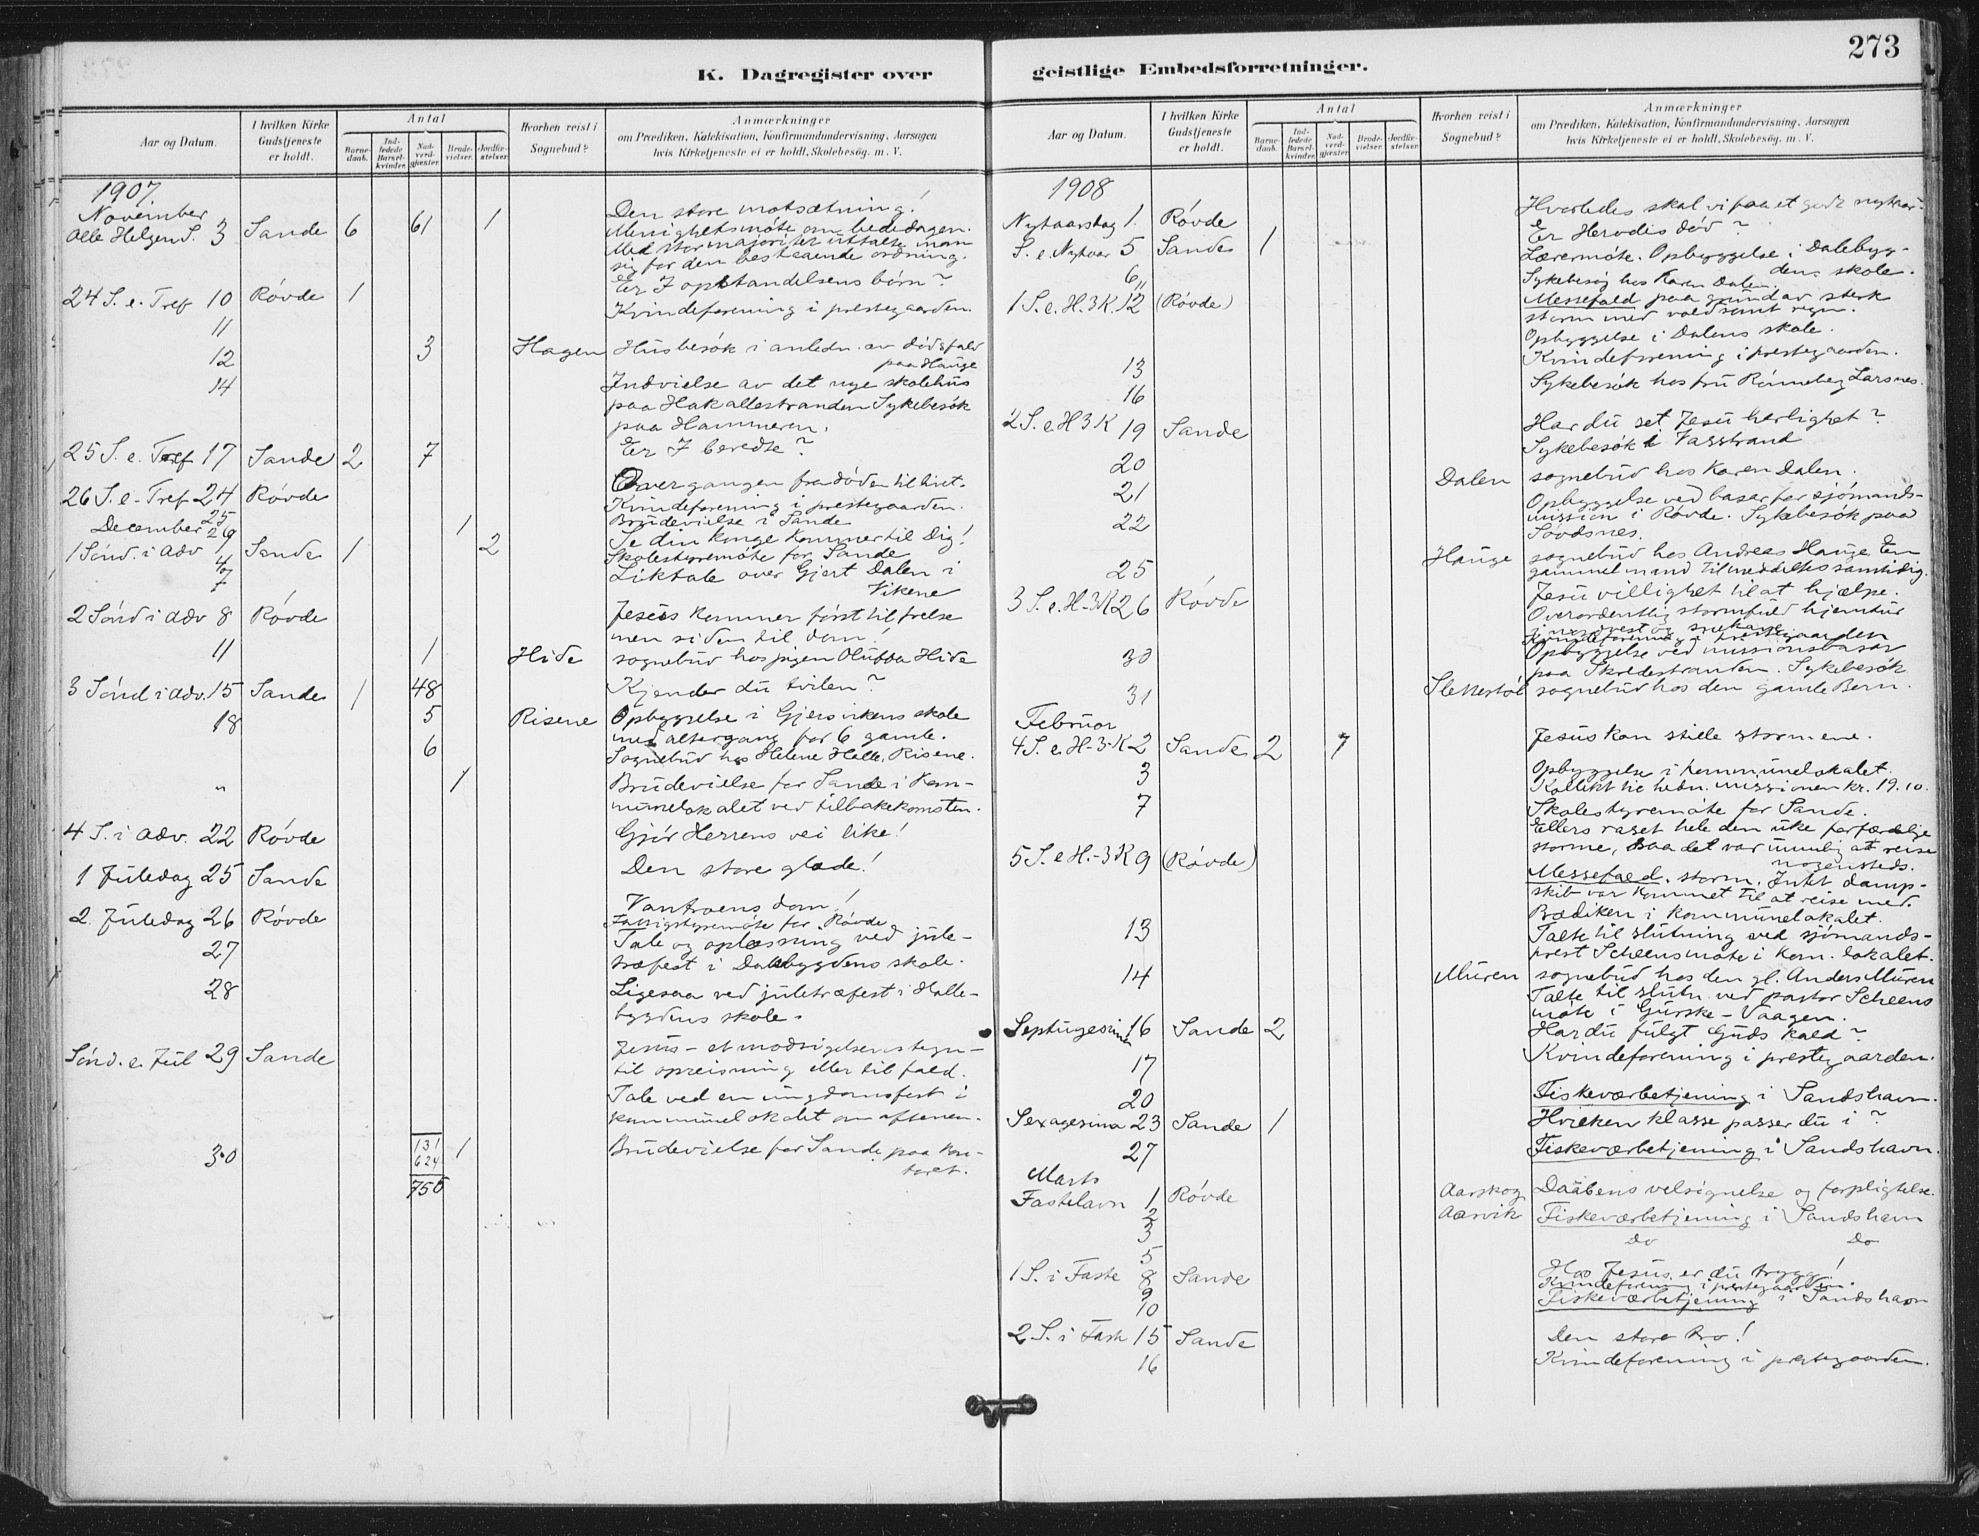 273
K. Dagregister over
Aar og Datum.
I hvilken Kirke Gudstjeneste er holdt.
Antal
Barne-daab.
Ind-ledede Barsel-kvinder.
Nad-verd-gjester
Brude-vielser.
Jordfæ-stelser
Hvorhen reist i Sognebud?
Anmærkninger
om Prædiken, Katekisation, Konfirmandundervisning, Aarsagen
hvis Kirketjeneste ei er holdt, Skolebesøg. m. V.
1907.
November
Den store motsætning!
Alle Helgen S. 3 Sande 6 61 1 Menighetsmöte om bededagen.
Med stor majoritet uttalte man
sig for den bestaaende ordning.
Er I opstandelsens börn?
24 S. e. Tref 10 Rövde 1
11 Kvindeforening i prestegaarden.
12 3 Hagen Husbesök i anledn. av dödsfald
paa Hauge
14 Indvielse av det nye skolehus
paa Hakallestranden Sykebesök
paa Hammeren.
25 S. e. Tref 17 Sande 2 7 Er I beredte?
26 S. e. Tref 24 Rövde Overgangen fra döden til livet.
25 Kvindeforening i prestegaarden.
December 29 1 Brudevielse i Sande
1 Sönd. i Adv 1 Sande 1 2 Se din konge kommer til Dig!
4 Skolestyremöte for Sande
7 Liktale over Gjert Dalen i
Vikene
2 Sönd i Adv 8 Rövde Jesus kommer först til frelse
men siden til dom!
11 1 Hide sognebud hos pigen Olubba Hide
3 Sönd i Adv. 15 Sande 1 48 Kjender du tvilen?
18 5 Risene Opbyggelse i Gjersvikens skole
med altergang for 6 gamle.
6 Sognebud hos Helene Helle, Risene.
" 1 Brudevielse for Sande i Kom-
munelokalet ved tilbakekomsten.
4 S. i Adv. 22 Rövde Gjör Herrens vei like!
1 Juledag 25 Sande Den store glæde!
2. Juledag 26 Rövde Vantroens dom!
Fattigstyremöte for Rövde
27 Tale og oplæsning ved jule-
træfest i Dalebygdens skole.
28 Ligesaa ved juletræfest i Halle-
bygdens skole.
Sönd. e. Jul 29 Sande Jesus - et modsigelsens tegn -
til opreisning eller til fald.
Tale ved en ungdomsfest i
kommunelokalet om aftenen.
30 131 1 Brudevielse for Sande paa kon-
toret.
624
755
geistlige Embedsforretninger.
Aar og Datum.
I hvilken Kirke Gudstjeneste er holdt.
Antal
Barne-daab.
Ind-ledede Barsel-kvinder
Nad-verd-gjester
Brude-vielser
Jordfæ-stelser
Hvorhen reist i Sognebud?
Anmærkninger
om Prædiken, Katekisation, Konfirmandundervisning, Aarsagen
hvis Kirketjeneste ei er holdt, Skolebesög. m. V.
1908
Nytaarsdag 1. Rövde Hvorledes skal vi faa et godt nytaar?
S. e. Nytaar 5 Sande 1 Er Herodis död?
6 Lærermöte. Opbyggelse i Dalebyg-
dens skole.
" Sykebesög hos Karen Dalen.
1 S. e. H. 3 K. 12 (Rövde) Messefald paa grund av sterk
storm med voldsomt regn.
Opbyggelse i Dalens skole.
13 Kvindeforening i prestegaarden.
16 Sykebesök hos fru Rönneberg Larsnes.
2 S. e H 3 K 19 Sande Har du set Jesu herlighet?
20 Sykebesök Vasstrand
21 Dalen sognebud hos Karen Dalen.
22 Opbyggelse ved basar for sjömands-
mission i Rövde. Sykebesök paa
Sövdsnes.
25 Hauge sognebud hos Andreas Hauge. En
gammel mand tilmeddeltes samtidig.
3 S. e. H-3 K 26 Rövde Jesu villighet til at hjælpe.
Overordentlig stormfuld hjemtur
i nordvest og snekave
Kvindeforening i prestegaarden
30 Opbyggelse ved missionsbasar
paa Skredestranden. Sykebesök
31 Slettestöl sognebud hos den gamle Bern.
Februar
4 S. e. H-3-K 2 Sande 2 7 Jesus kan stille stormene.
3 Opbyggelse i kommunelokalet.
Kollekt til hedn. missionen kr. 19.10.
7 Skolestyremöte for Sande.
Ellers raset hele den uke forfærdelige
storme, saa det var umulig at reise
nogensteds.
5 S. e H.-3 K 9 (Rövde) Messefald. storm. Intet damp-
skib var kommet til at reise med.
Prædiken i kommunelokalet.
13 Talte til slutning ved sjömands-
prest Scheens möte i kom. lokalet.
14 Muren sognebud hos den gl. Anders Muren
Talte til slutn. ved pastor Scheens
möte i Gurske-Vaagen.
Septuagesima 16 Sande 2 Har du fulgt Guds kald?
17 Kvindeforening i prestegaarden.
20 Fiskeværbetjening i Sandshavn.
Sexagesima 23 Sande 1 Hvilken klasse passer du i?
27 Fiskeværbetjening i Sandshavn.
Marts
Fastelavn 1 Rövde Aarskog Daabens velsignelse og forpligtelse.
2 Aarvik Fiskeværbetjening i Sandshavn
3 Do Do
5
1 S. i Faste 8 Sande Hos Jesus er du trygg!
9 Kvindeforening i prestegaarden.
10 Fiskeværbetjening i Sandshavn
2 S. i Faste 15 Sande Den store tro!
16 Kvindeforening i prestegaarden.